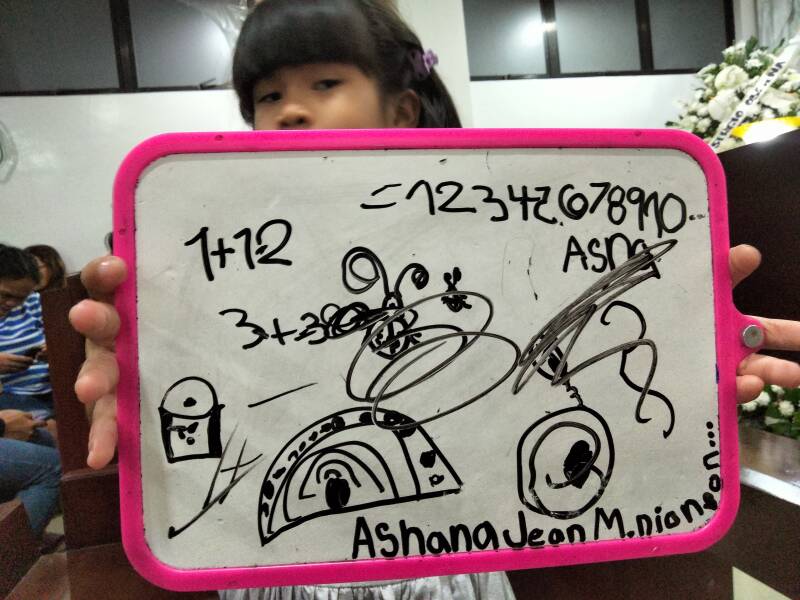 =12345678910...
1+1=2
ASha
3+3
Ashana Jean M.nianeon...